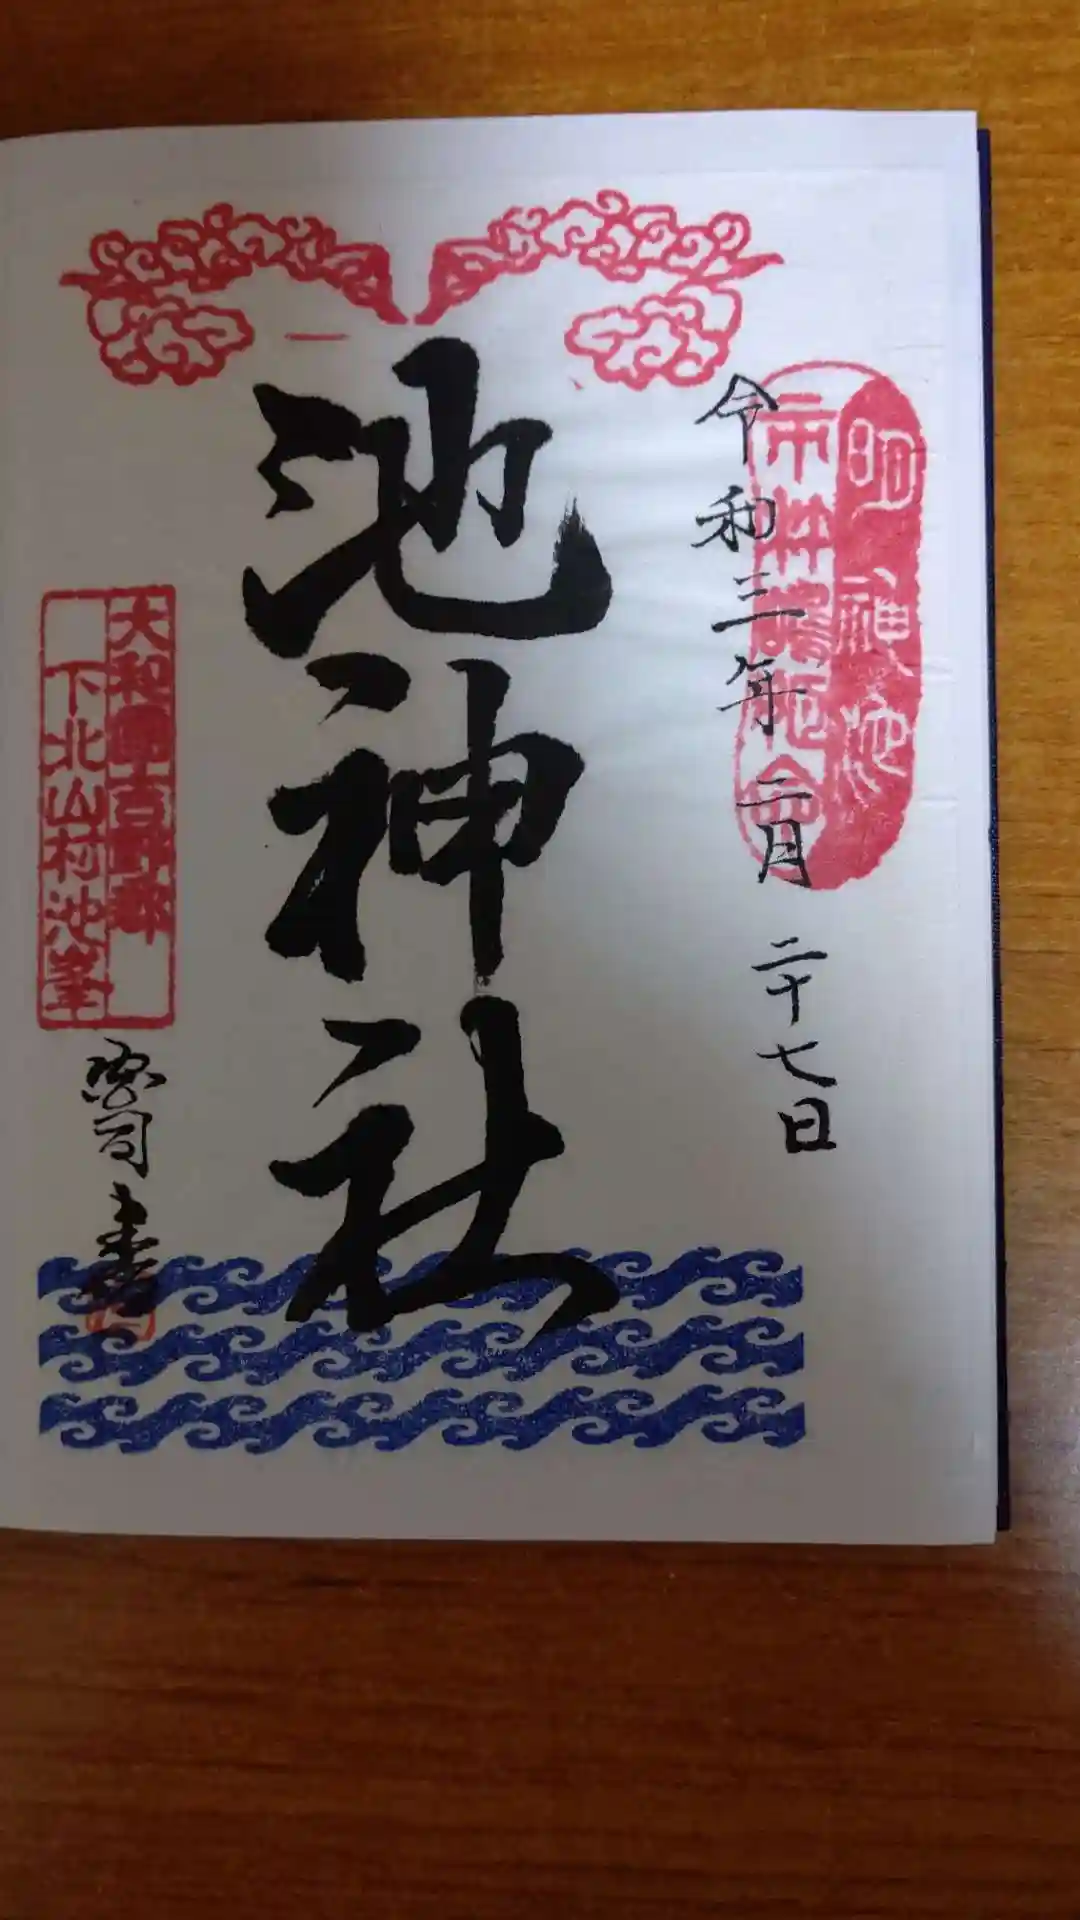 令和三年 二月 二十七日
市杵嶋姫命
池神社
大和國吉野郡
下北山村池峯
宮司